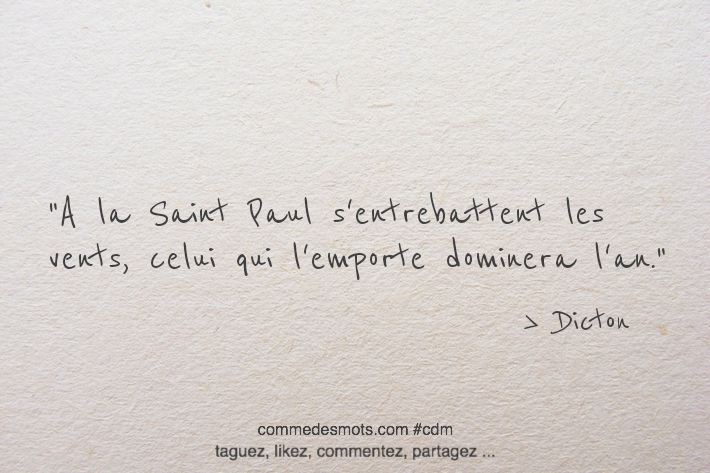 "A la Saint Paul s'entrebattent les
vents, celui qui l'emporte dominera l'an."
> Dicton
commedesmots.com #cdm
taguez, likez, commentez, partagez ...